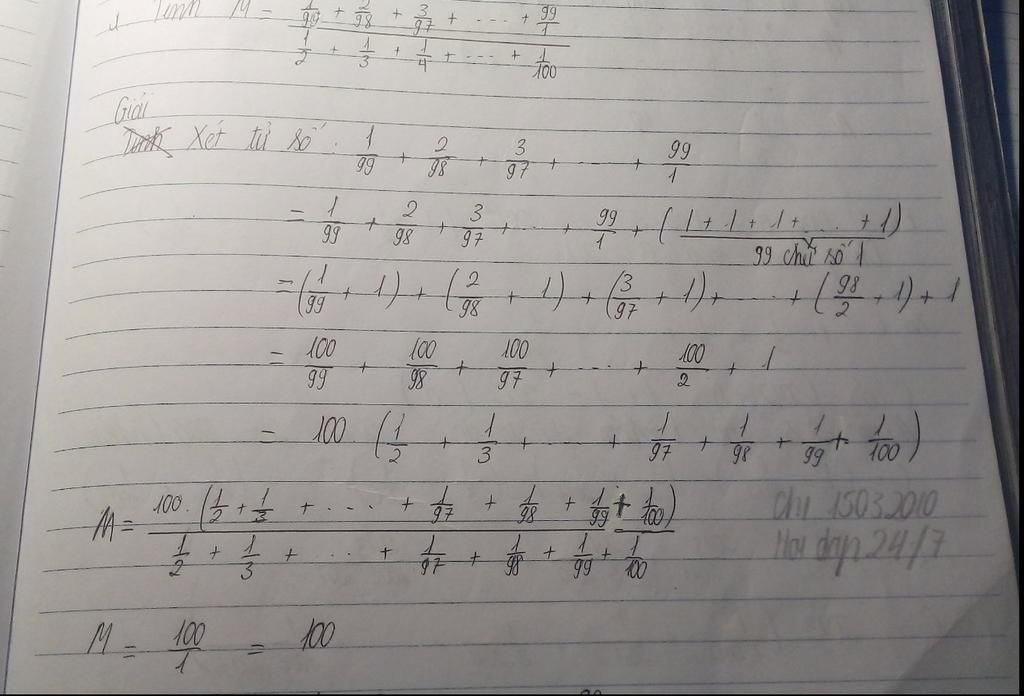 Tính M = \frac{\frac{1}{99} + \frac{2}{98} + \frac{3}{97} + ... + \frac{99}{1}}{\frac{1}{2} + \frac{1}{3} + \frac{1}{4} + ... + \frac{1}{100}}
Giải
Xét tử số: \frac{1}{99} + \frac{2}{98} + \frac{3}{97} + ... + \frac{99}{1}
= \frac{1}{99} + \frac{2}{98} + \frac{3}{97} + ... + \frac{99}{1} + (1 + 1 + 1 + ... + 1)
99 chữ số 1
= (\frac{1}{99} + 1) + (\frac{2}{98} + 1) + (\frac{3}{97} + 1) + ... + (\frac{98}{2} + 1) + 1
= \frac{100}{99} + \frac{100}{98} + \frac{100}{97} + ... + \frac{100}{2} + 1
= 100. (\frac{1}{2} + \frac{1}{3} + ... + \frac{1}{97} + \frac{1}{98} + \frac{1}{99} + \frac{1}{100})
M = \frac{100. (\frac{1}{2} + \frac{1}{3} + ... + \frac{1}{97} + \frac{1}{98} + \frac{1}{99} + \frac{1}{100})}{\frac{1}{2} + \frac{1}{3} + ... + \frac{1}{97} + \frac{1}{98} + \frac{1}{99} + \frac{1}{100}}
Chi 15032010
Hoi dap 24/7
M = \frac{100}{1} = 100